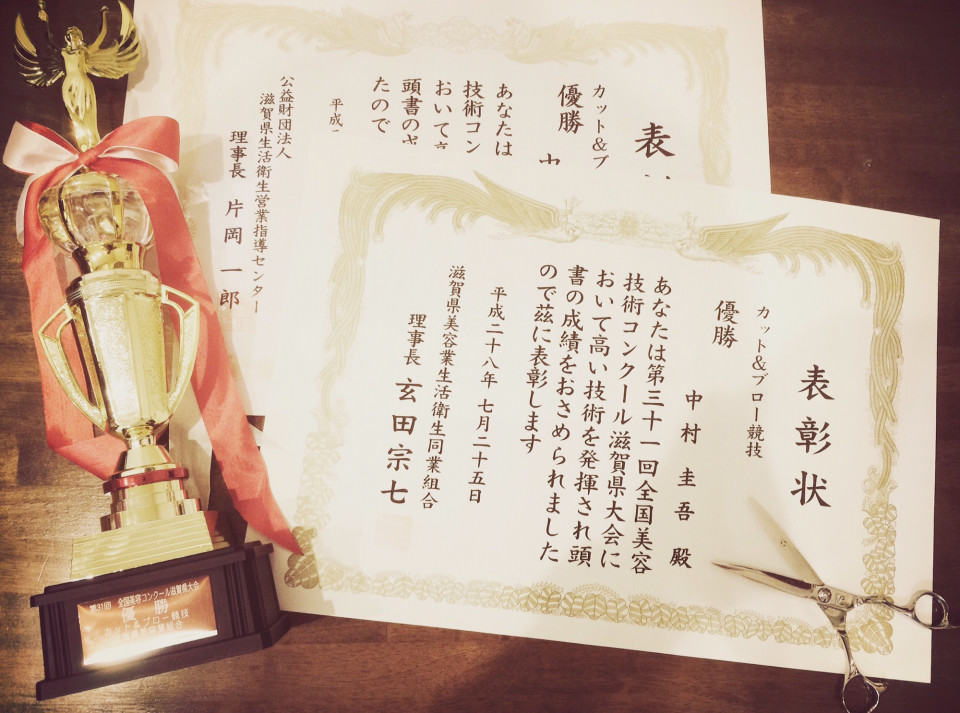 表彰状
カット&ブロー競技
優勝
中村圭吾 殿
あなたは第三十一回全国美容
技術コンクール滋賀県大会に
おいて高い技術を発揮され頭
書の成績をおさめられました
ので茲に表彰します
平成二十八年 七月二十五日
滋賀県美容業生活衛生同業組合
理事長 玄田宗七
表
カット&ブ
優勝
あなたは
技術コン
おいて高
頭書の
たので
平成
公益財団法人
滋賀県生活衛生営業指導センター
理事長 片岡一郎
第31回 全国美容コンクール滋賀県大会
優勝
ブロー競技